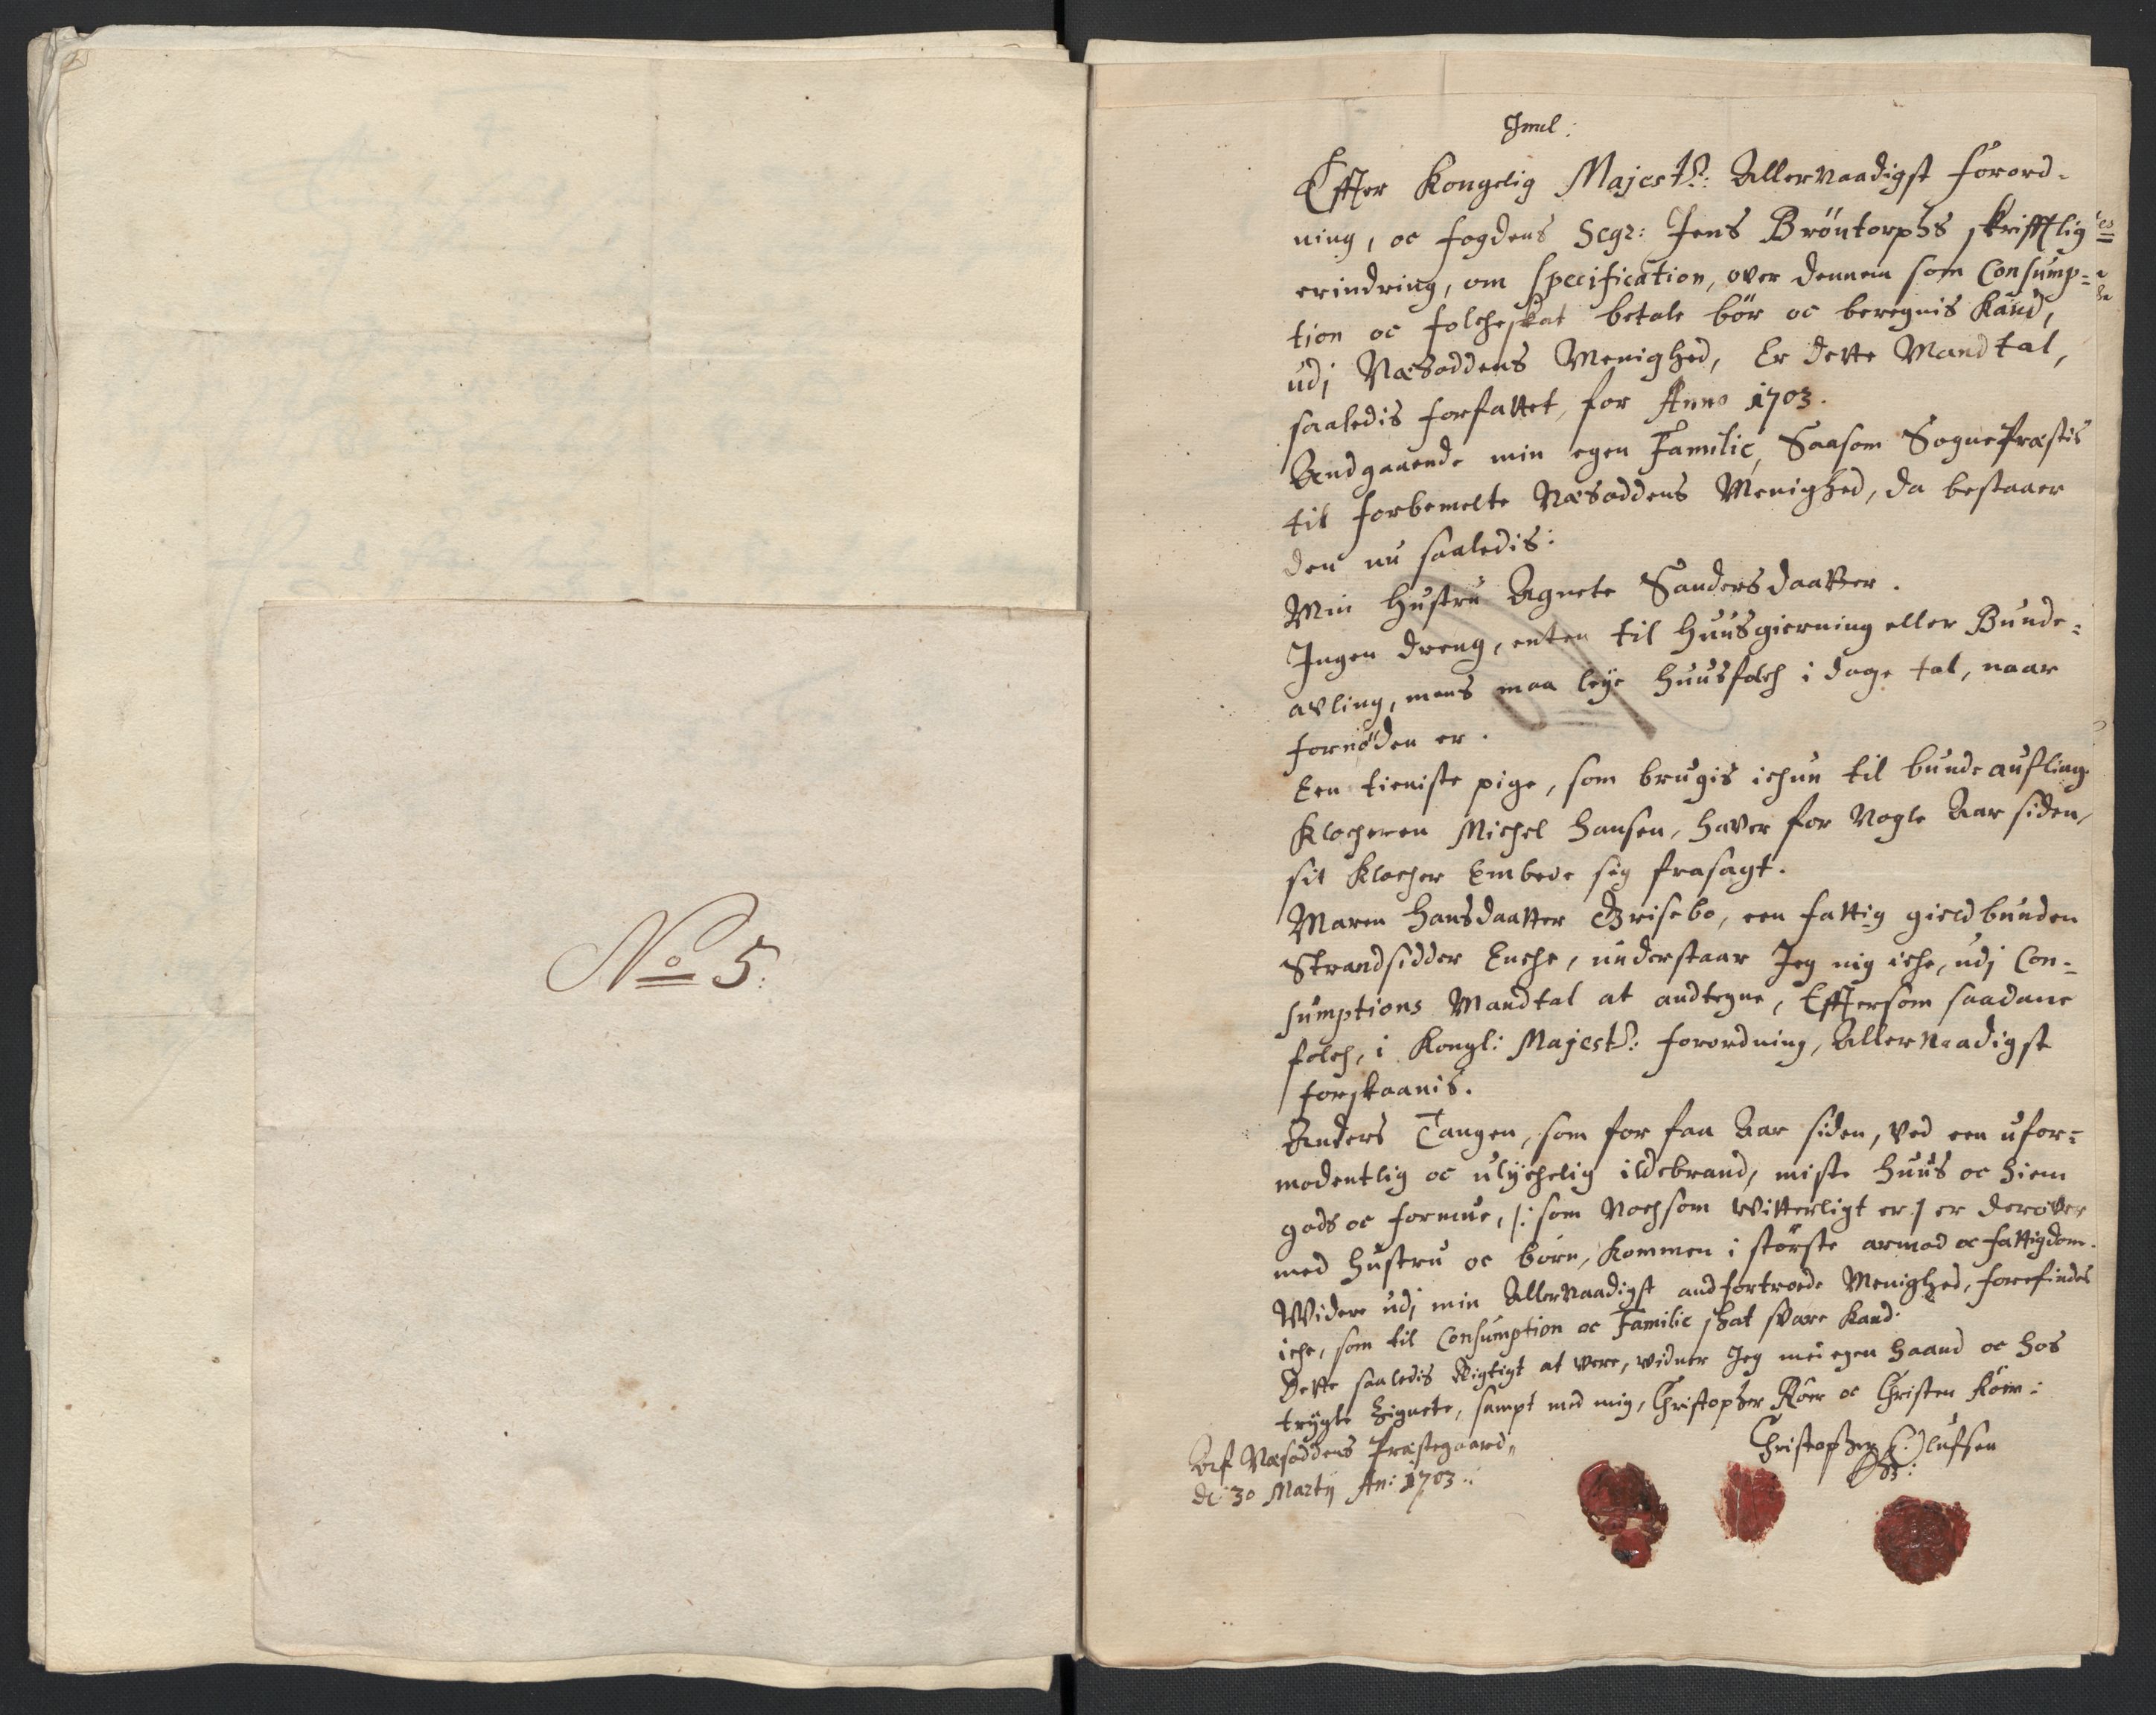 No 5.
Effter Kongelig Majestts: Allernaadigst Forord-
ning, oc fogdens Segr: Jens Bröntorphs skrifftlig
erindring, om specification, over dennem som Consump-
tion oc folcheskat betale bör oc beregnis Kand,
udj Næsoddens Menighed, Er dette Mandtal,
saaledis forfattet, for Anno 1703.
Andgaaende min egen Familie, Saasom Sognepræstis
til forbemelte Næsoddens Menighed, da bestaaer
den nu saaledis:
Min Hustru Agnete Sandersdaatter.
Ingen dreng, enten til Huusgierning eller Bunde-
avling, mens maa leye Huusfolch i dage tal, naar
fornöden er.
Een tieniste pige, som brugis ichun til bunde aufling
Klocheren Michel Hansen, haver for Nogle Aar siden,
sit Klocher Embede sig frasagt.
Maren Hansdaatter Grisebo, een fattig gieldbunden
Strandsidder Enche, understaar Jeg mig iche, udj Con-
sumptions Mandtal at andtegne, Efftersom saadane
folch, i Kongl: Majestts: forordning, Allernaadigst
forskaanis.
Anders Tangen, som for faa Aar siden, ved een ufor-
modentlig oc ulychelig ildebrand, miste Huus oc Hiem
gods oc formue, /: som Nochsom witterligt er :/ er derover
med Hustru oc börn, kommen i störste armod oc fattigdom.
Widere udj min Allernaadigst andfortroede Menighed, forefindes
iche, som til Consumption oc Familie skat svare Kand.
Dette saaledis Rigtigt at vere, widner Jeg med egen Haand oc hos
trygte Zignete, sampt med mig, Christopher Röer oc Christen Röer:
Aff Næsoddens Præstegaard,
de 30 Martij An: 1703.
Christopher Olufsen